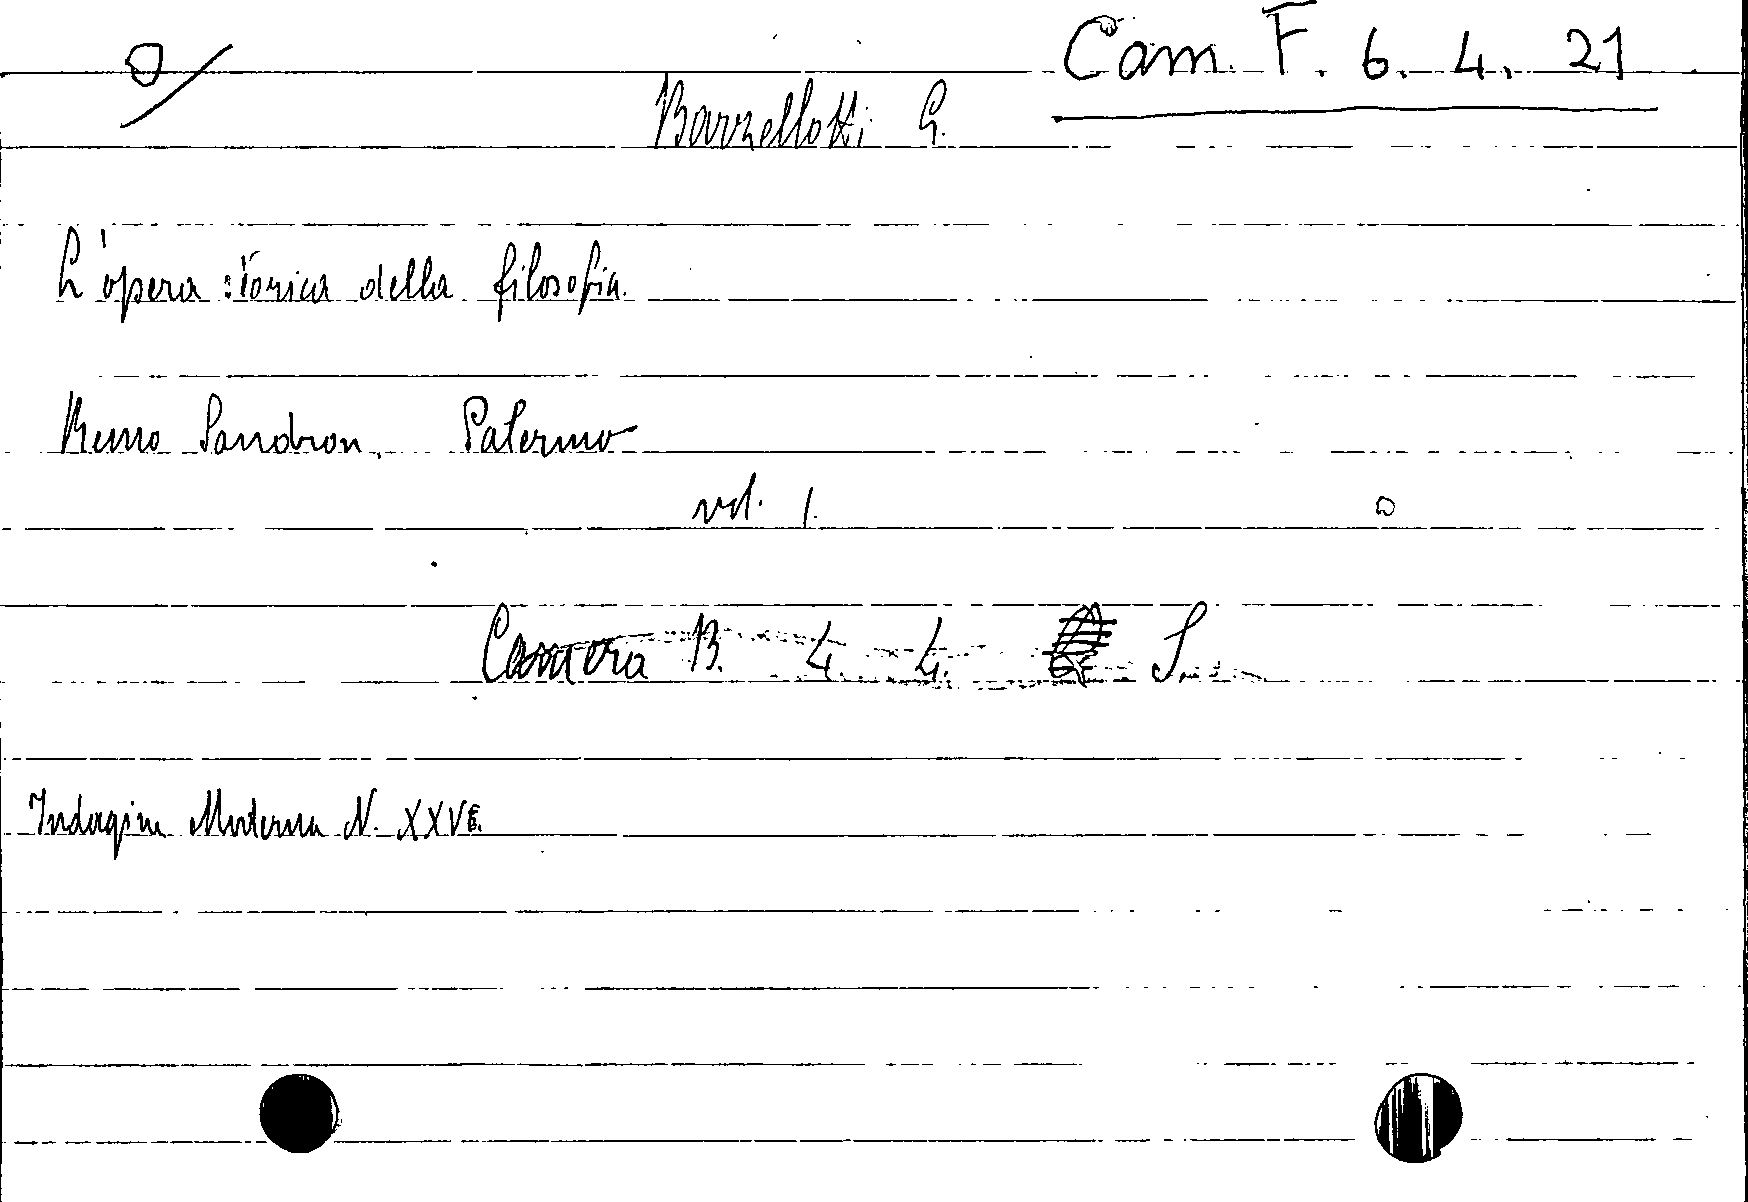 Cam. F. 6. 4. 21
Barzellotti G.
L'opera storica della filosofia.
Remo Sandron, Palermo
vol. 1.
Camera B. 4. 4. S.
Indagini Moderna N. XXVI.